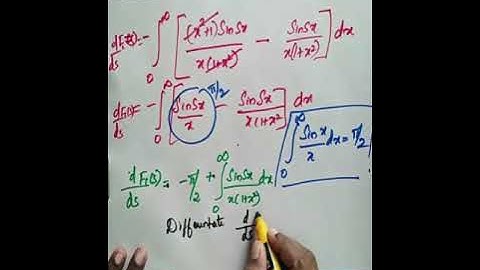 dF(s)/ds = - ∫₀^∞ [ (x²+1) sin sx / x(1+x²) - sin sx / x(1+x²) ] dx
dF(s)/ds = - ∫₀^∞ [ sin sx / x - sin sx / x(1+x² ] dx
π/2
∫₀^∞ sin x / x dx = π/2
dF(s)/ds = - π/2 + ∫₀^∞ sin sx / x(1+x²) dx
Diffrentate d/ds